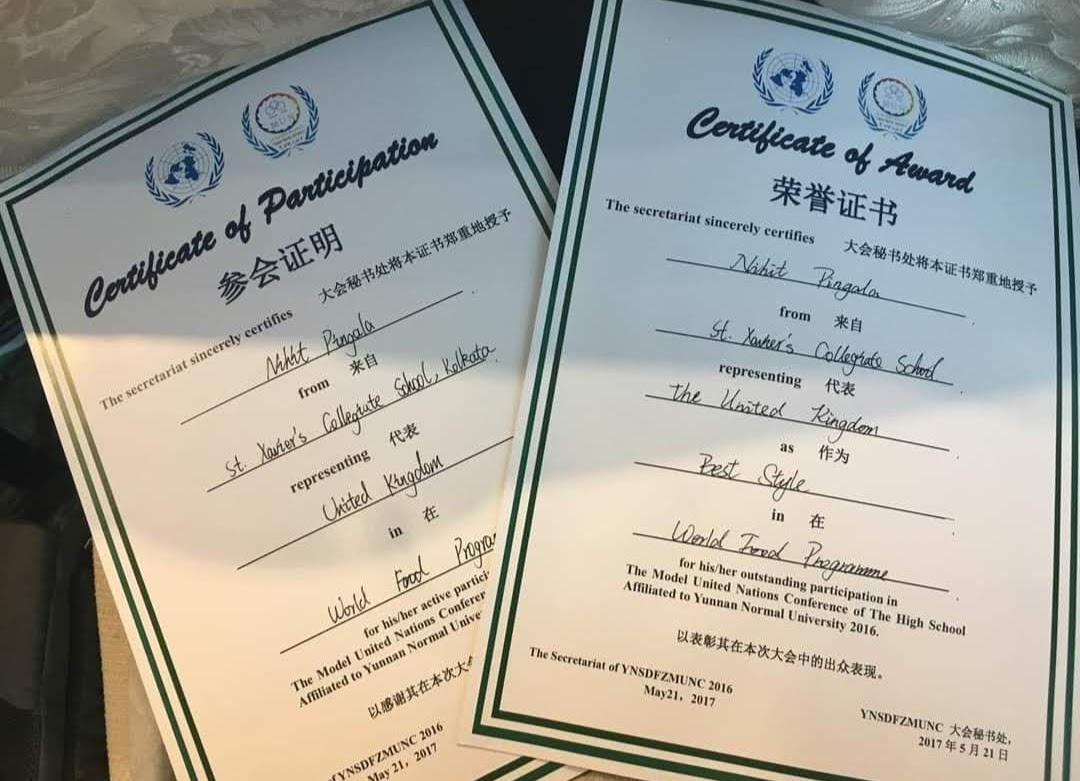 Certificate of Participation
参会证明
The secretariat sincerely certifies 大会秘书处将本证书郑重地授予
Nihit Pingala
from 来自
St. Xavier's Collegiate School, Kolkata
representing 代表
United Kingdom
in 在
World Food Progra
for his/her active partici
The Model United Nations Conferen
Affiliated to Yunnan Normal Unive
以感谢其在本次大会
YNSDFZMUNC 2016
May 21, 2017
Certificate of Award
荣誉证书
The secretariat sincerely certifies 大会秘书处将本证书郑重地授予
Nihit Pingala
from 来自
St. Xavier's Collegiate School
representing 代表
the United Kingdom
as 作为
Best Style
in 在
World Food Programme
for his/her outstanding participation in
The Model United Nations Conference of The High School
Affiliated to Yunnan Normal University 2016.
以表彰其在本次大会中的出众表现。
The Secretariat of YNSDFZMUNC 2016
May21, 2017
YNSDFZMUNC 大会秘书处,
2017年5月21日